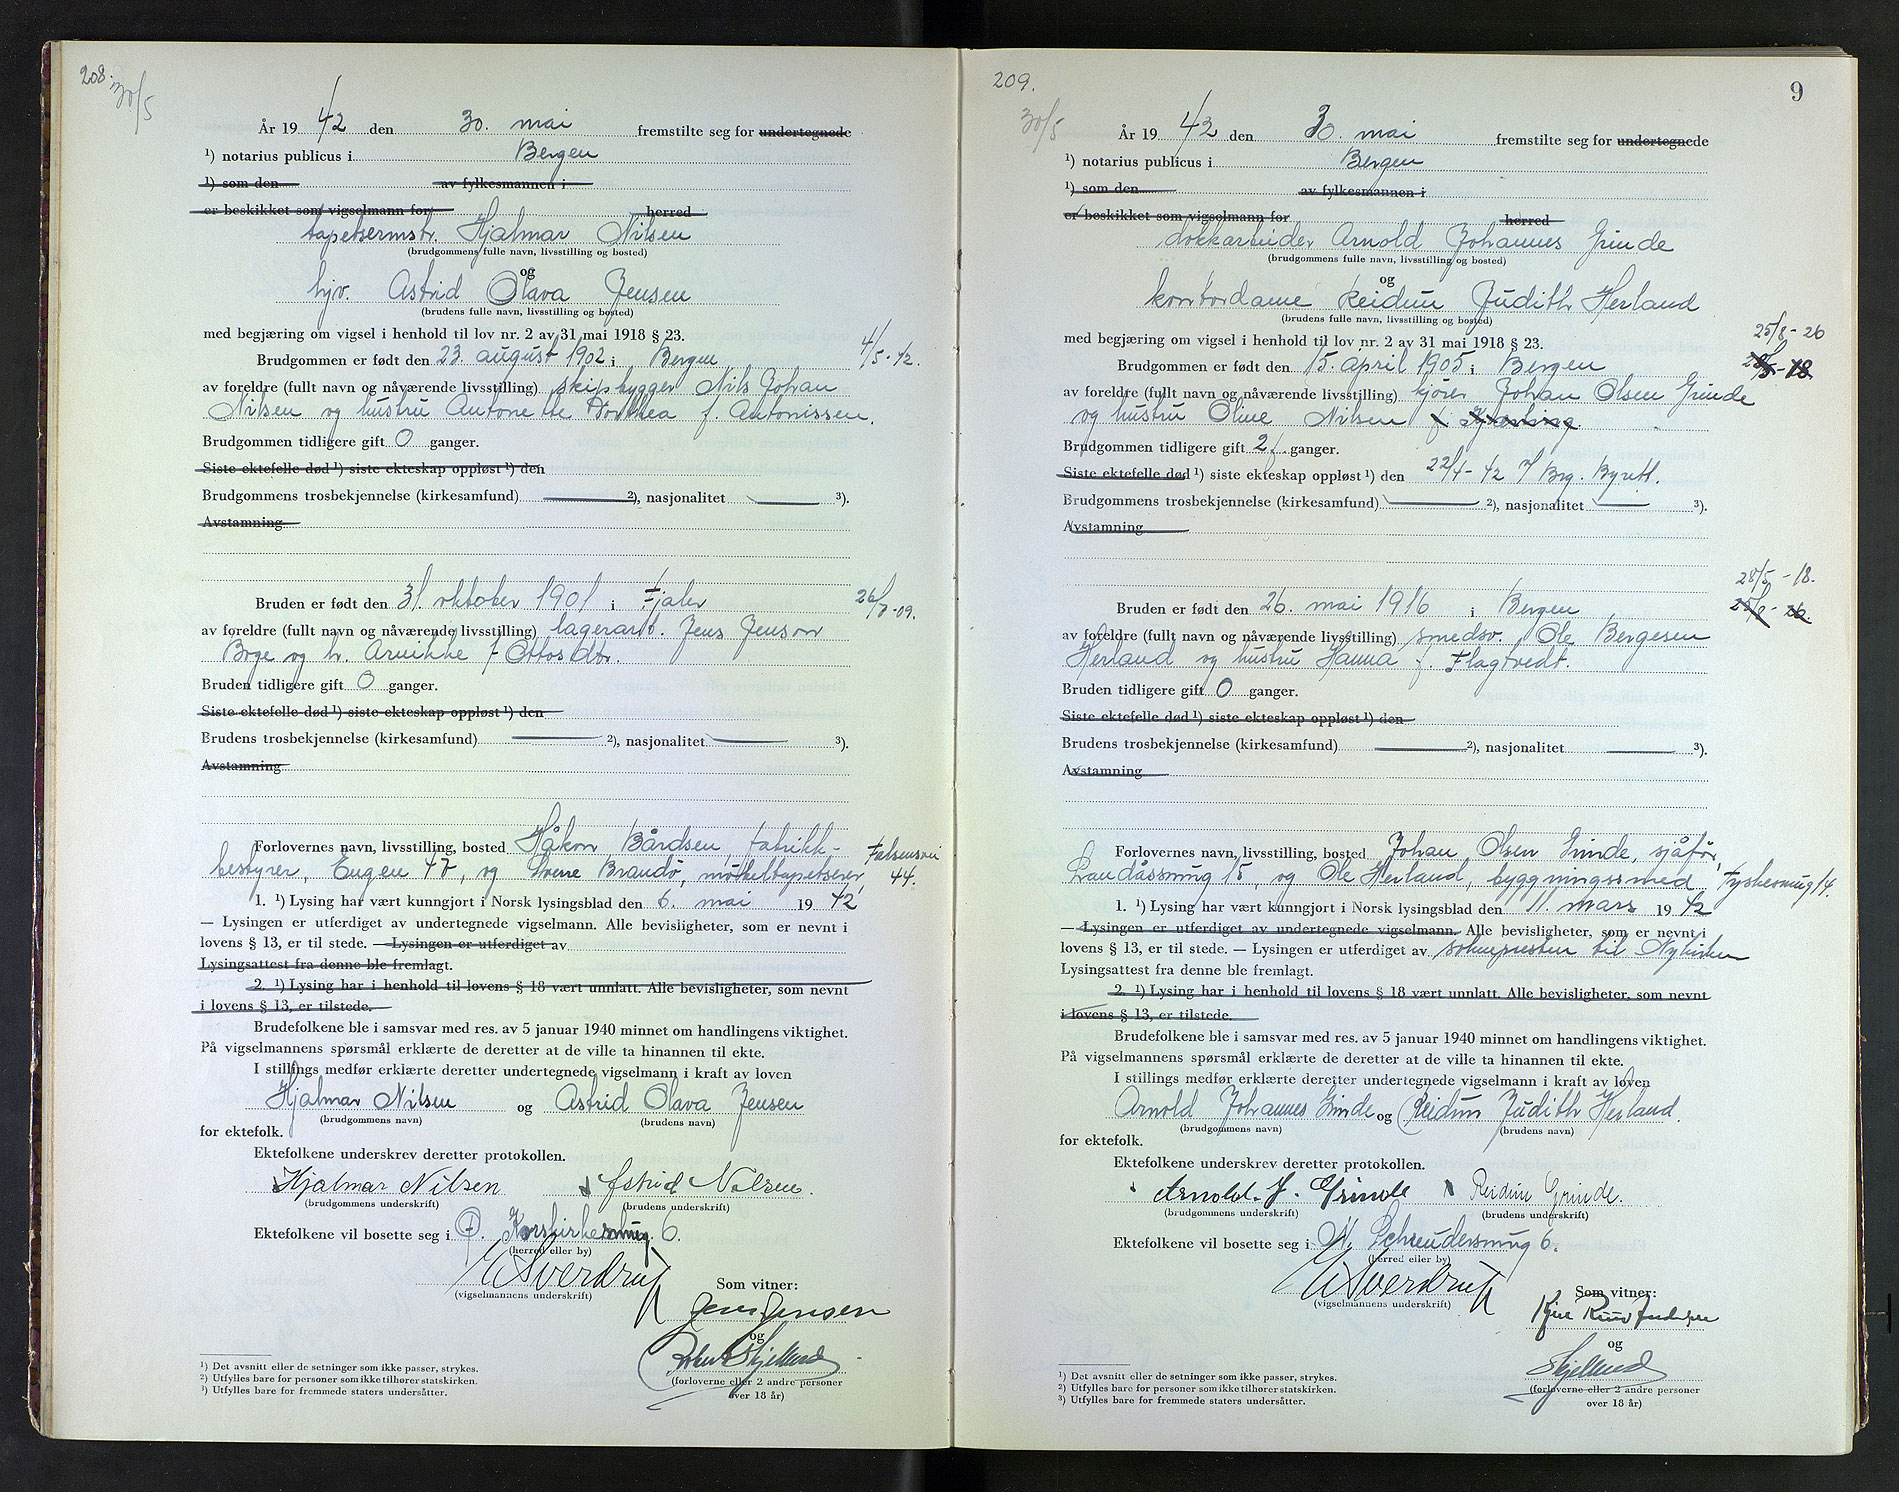 208.
30/5
År 19 42 den 30. mai fremstilte seg for undertegnede
¹) notarius publicus i Bergen
¹) som den av fylkesmannen i
er beskikket som vigselmann for herred
tapetsermstr. Hjalmar Nilsen
(brudgommens fulle navn, livsstilling og bosted)
og
hjv. Astrid Olava Jensen
(brudens fulle navn, livsstilling og bosted)
med begjæring om vigsel i henhold til lov nr. 2 av 31 mai 1918 § 23.
Brudgommen er født den 23. august 1902 i Bergen 4/5-12.
av foreldre (fullt navn og nåværende livsstilling) skipsbygger Nils Johan
Nilsen og hustru Antonette Dorthea f. Antonissen.
Brudgommen tidligere gift 0 ganger.
Siste ektefelle død ¹) siste ekteskap oppløst ¹) den
Brudgommens trosbekjennelse (kirkesamfund) ²), nasjonalitet ³).
Avstamning
Bruden er født den 31. oktober 1901 i Fjaler 26/7-09.
av foreldre (fullt navn og nåværende livsstilling) lagerarb. Jens Jenson
Børge og h. Arnikke f. Ottosdtr.
Bruden tidligere gift 0 ganger.
Siste ektefelle død ¹) siste ekteskap oppløst ¹) den
Brudens trosbekjennelse (kirkesamfund) ²), nasjonalitet ³).
Avstamning
Forlovernes navn, livsstilling, bosted Håkon Bårdsen, fabrikk-
bestyrer, Engen 47, og Sverre Brandø, møbeltapetserer, 44.
1. ¹) Lysing har vært kunngjort i Norsk lysingsblad den 6. mai 19 42
— Lysingen er utferdiget av undertegnede vigselmann. Alle bevisligheter, som er nevnt i
lovens § 13, er til stede. — Lysingen er utferdiget av
Lysingsattest fra denne ble fremlagt.
2. ¹) Lysing har i henhold til lovens § 18 vært unnlatt. Alle bevisligheter, som nevnt
i lovens § 13, er tilstede.
Brudefolkene ble i samsvar med res. av 5 januar 1940 minnet om handlingens viktighet.
På vigselmannens spørsmål erklærte de deretter at de ville ta hinannen til ekte.
I stillings medfør erklærte deretter undertegnede vigselmann i kraft av loven
Hjalmar Nilsen og Astrid Olava Jensen
(brudgommens navn) (brudens navn)
for ektefolk.
Ektefolkene underskrev deretter protokollen.
Hjalmar Nilsen Astrid Nilsen.
(brudgommens underskrift) (brudens underskrift)
Ektefolkene vil bosette seg i Ø. Korskirkesmug 6.
(herred eller by)
E Sverdrup
(vigselmannens underskrift)
Som vitner:
Jens Jensen
og
Skjellund
(forloverne eller 2 andre personer
over 18 år)
¹) Det avsnitt eller de setninger som ikke passer, strykes.
²) Utfylles bare for personer som ikke tilhører statskirken.
³) Utfylles bare for fremmede staters undersåtter.
209.
9
30/5
År 19 42 den 30. mai fremstilte seg for undertegnede
¹) notarius publicus i Bergen
¹) som den av fylkesmannen i
er beskikket som vigselmann for herred
dokkarbeider Arnold Johannes Grinde
(brudgommens fulle navn, livsstilling og bosted)
og
kontordame Reidun Judith Herland
(brudens fulle navn, livsstilling og bosted)
med begjæring om vigsel i henhold til lov nr. 2 av 31 mai 1918 § 23.
25/8-26
Brudgommen er født den 15. april 1905 i Bergen 28/5-18.
av foreldre (fullt navn og nåværende livsstilling) kjører Johan Olsen Grinde
og hustru Oline Nilsen f.
Brudgommen tidligere gift 2 ganger.
Siste ektefelle død ¹) siste ekteskap oppløst ¹) den 22/4-42 v/ Brg. Byrett.
Brudgommens trosbekjennelse (kirkesamfund) ²), nasjonalitet ³).
Avstamning
28/5-18.
Bruden er født den 26. mai 1916 i Bergen
av foreldre (fullt navn og nåværende livsstilling) smedsv. Ole Bergesen
Herland og hustru Hanna f. Flagtvedt.
Bruden tidligere gift 0 ganger.
Siste ektefelle død ¹) siste ekteskap oppløst ¹) den
Brudens trosbekjennelse (kirkesamfund) ²), nasjonalitet ³).
Avstamning
Forlovernes navn, livsstilling, bosted Johan Olsen Grinde, sjåfør,
Landåssmug 15, og Ole Herland, byggningssmed, Fyskesmug 14.
1. ¹) Lysing har vært kunngjort i Norsk lysingsblad den 11. mars 19 42
— Lysingen er utferdiget av undertegnede vigselmann. Alle bevisligheter, som er nevnt i
lovens § 13, er til stede. — Lysingen er utferdiget av soknepresten til Nykirken
Lysingsattest fra denne ble fremlagt.
2. ¹) Lysing har i henhold til lovens § 18 vært unnlatt. Alle bevisligheter, som nevnt
i lovens § 13, er tilstede.
Brudefolkene ble i samsvar med res. av 5 januar 1940 minnet om handlingens viktighet.
På vigselmannens spørsmål erklærte de deretter at de ville ta hinannen til ekte.
I stillings medfør erklærte deretter undertegnede vigselmann i kraft av loven
Arnold Johannes Grinde og Reidun Judith Herland.
(brudgommens navn) (brudens navn)
for ektefolk.
Ektefolkene underskrev deretter protokollen.
Arnold. J. Grinde Reidun Grinde.
(brudgommens underskrift) (brudens underskrift)
Ektefolkene vil bosette seg i N. Schreudersmug 6.
(herred eller by)
E Sverdrup
(vigselmannens underskrift)
Som vitner:
og
Skjellund
(forloverne eller 2 andre personer
over 18 år)
¹) Det avsnitt eller de setninger som ikke passer, strykes.
²) Utfylles bare for personer som ikke tilhører statskirken.
³) Utfylles bare for fremmede staters undersåtter.